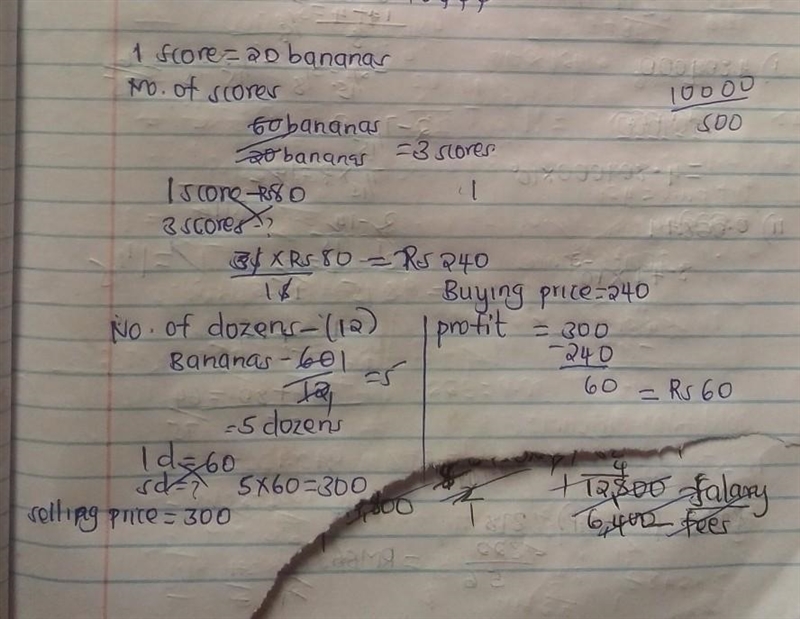 1 score = 20 bananas
No. of scores
10000
500
60 bananas
20 bananas = 3 scores
1 score - Rs80
1
3 scores - ?
3s × Rs 80 = Rs 240
1s
Buying price = 240
No. of dozens - (12)
Bananas - 60 1
12 1 = 5
= 5 dozens
profit = 300
- 240
60 = Rs 60
1d = 60
5d = ? 5 × 60 = 300
selling price = 300
800
1
4
+ 12,800 - salary
6,400 - fees